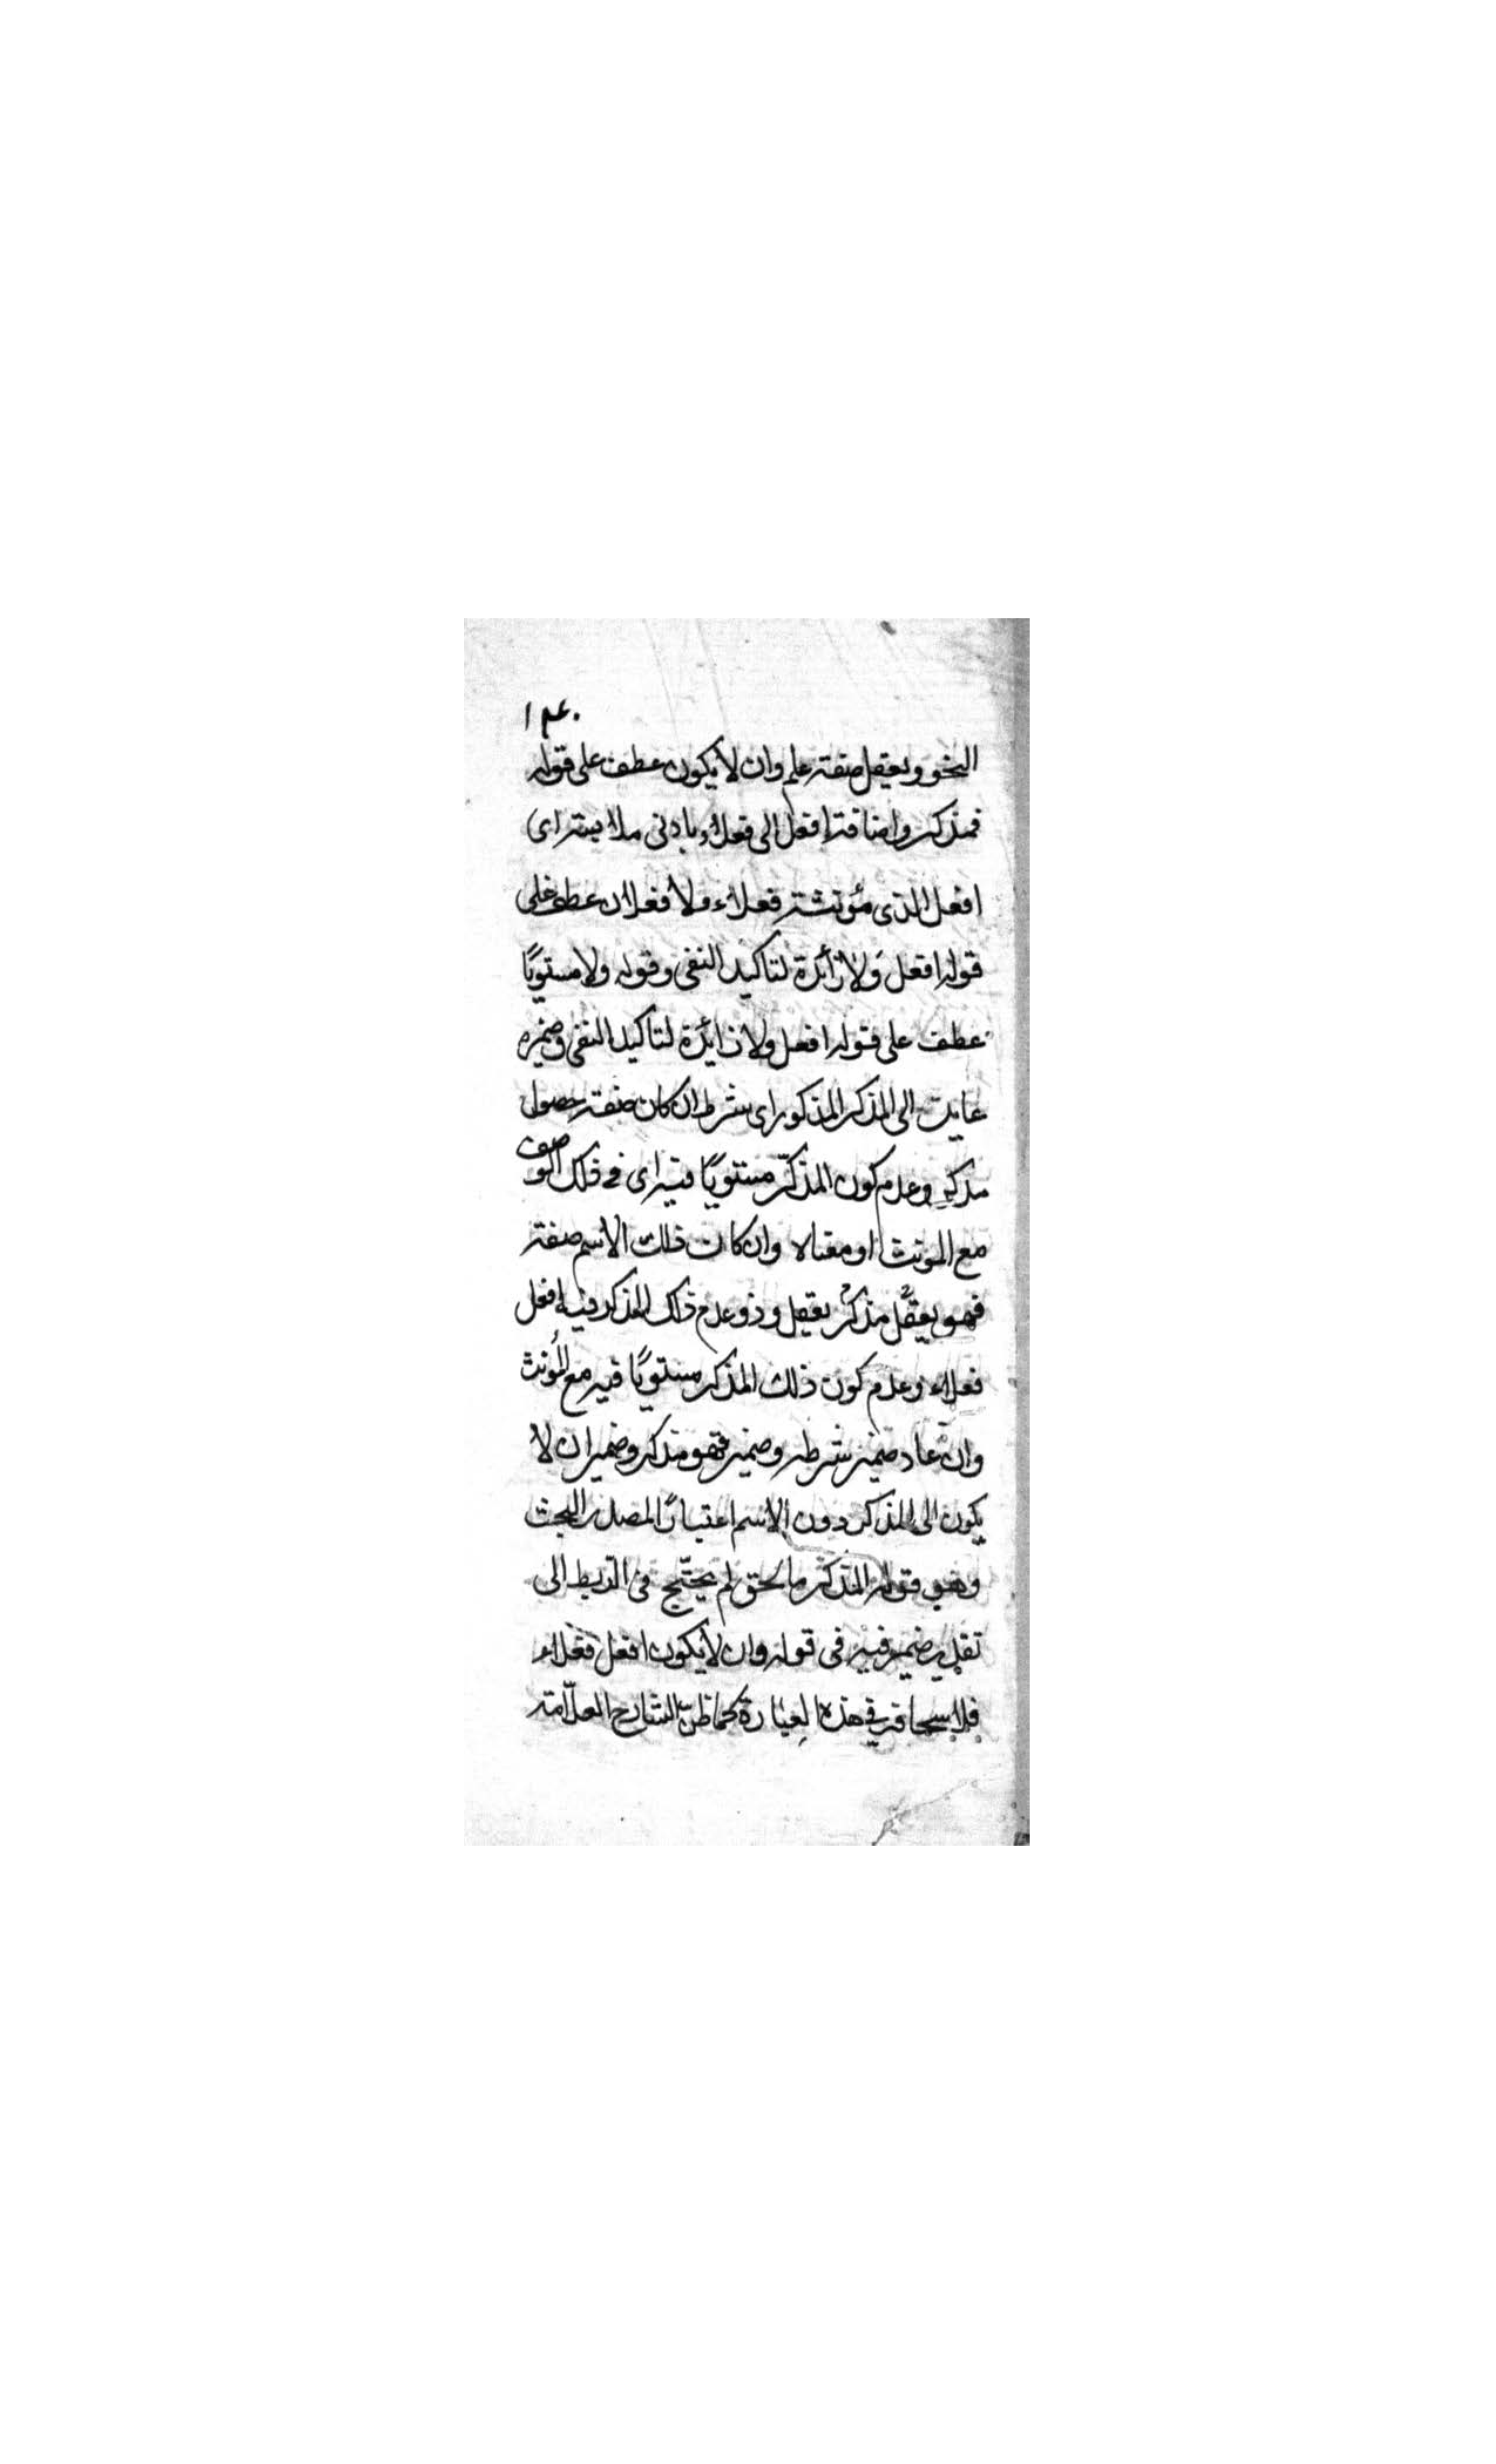 ۱۴۰
النحو ويعقل صفة علم وان لا يكون عطف على قوله
فمذكر واضافة افعل الى فعلاء بادنى ملابسة اى
افعل الذى مؤنثه فعلاء ولا فعلان عطف على
قوله افعل ولا زائدة لتاكيد النفى وقوله ولا مستويًا
عطف على قوله افعل ولا زائدة لتاكيد النفى وضميره
عايد الى المذكر المذكور اى شرط ان كان صفة حصول
مذكر وعدم كون المذكّر مستويًا فيه اى فى ذلك الوصف
مع المونث او معناه وان كان ذلك الاسم صفة
فهو يعقل مذكرٌ يعقل وذو عدم ذلك المذكر فيه افعل
فعلاء وعدم كون ذلك المذكر مستويًا فيه مع المؤنث
وان عاد ضمير شرطه وضمير فهو مذكر وضمير ان لا
يكون الى المذكر دون الاسم اعتبارًا لمصدر البحث
وهو قوله المذكر ما لحق لم يحتج فى الربط الى
تقدير ضمير فيه فى قوله وان لا يكون افعل فعلاء
فلا سجافة فى هذه العبارة كما ظن الشارح العلّامة